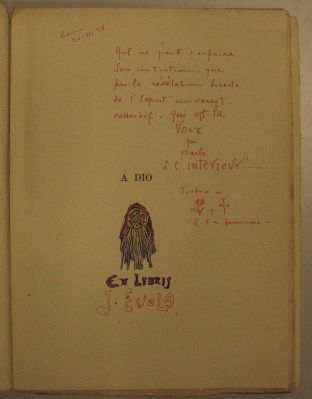 Nul ne peut parfaire
son initiation, que
par la révélation directe
de l'Esprit universel,
collectif, qui est la
Voix
qui
parle
à l'intérieur.
A DIO
EX LIBRIS
J. EVOLA